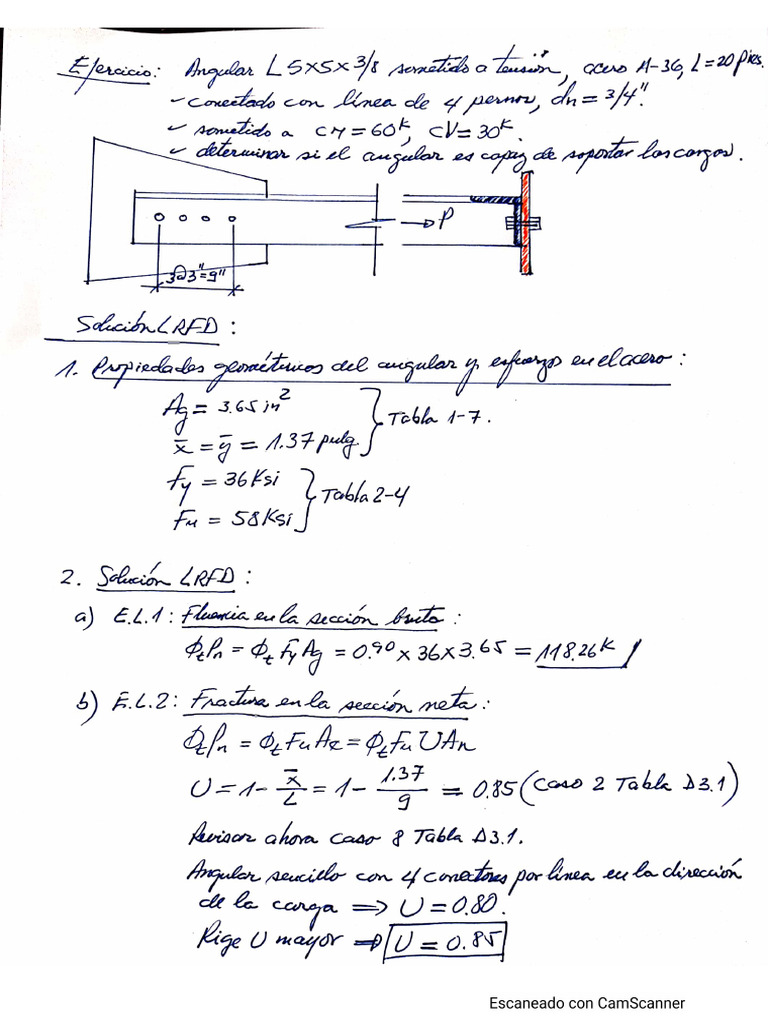 Ejercicio: Angular L 5x5x3/8 sometido a tensión, acero A-36, L=20 Pies.
- conectado con línea de 4 pernos, dn = 3/4".
- sometido a CM=60ᴷ, CV=30ᴷ.
- determinar si el angular es capaz de soportar las cargas.
P
3@3"=9"
Solución LRFD:
1. Propiedades geométricas del angular y esfuerzo en el acero:
Ag = 3.65 in²
x̄ = ȳ = 1.37 pulg
} Tabla 1-7.
Fy = 36 Ksi
Fu = 58 Ksi
} Tabla 2-4
2. Solución LRFD:
a) E.L.1: Fluencia en la sección bruta:
ΦtPn = Φt Fy Ag = 0.90 x 36 x 3.65 = 118.26ᴷ
b) E.L.2: Fractura en la sección neta:
ΦtPn = ΦtFuAe = ΦtFu U An
U = 1 - x̄/L = 1 - 1.37/9 = 0.85 (Caso 2 Tabla D3.1)
Revisar ahora caso 8 Tabla D3.1.
Angular sencillo con 4 conectores por línea en la dirección
de la carga ⇒ U = 0.80.
Rige U mayor ⇒ U = 0.85
Escaneado con CamScanner